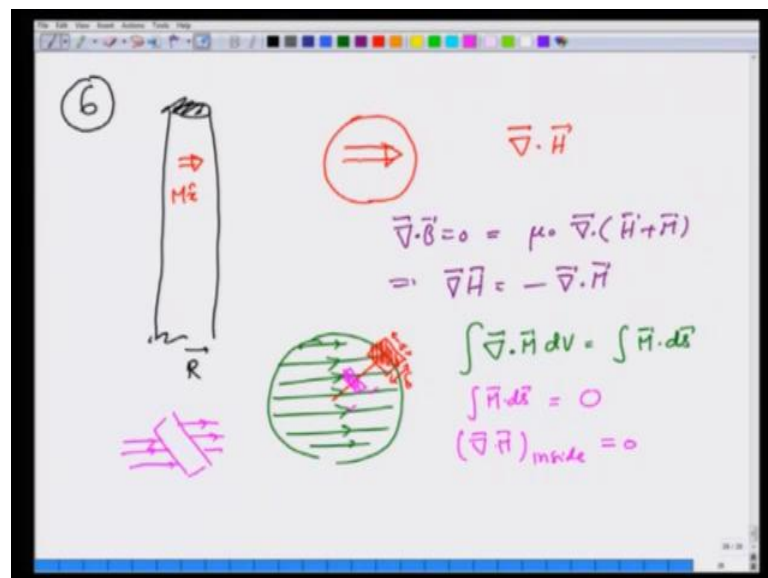 File Edit View Insert Actions Tools Help
6
Mx̂
R⃗
∇⃗·H⃗
∇⃗·B⃗=0 = μ₀ ∇⃗·(H⃗+M⃗)
⇒ ∇⃗H⃗ = − ∇⃗·M⃗
∫∇⃗·M⃗ dV = ∫M⃗·ds⃗
∫M⃗·ds⃗ = 0
(∇⃗·H⃗)inside = 0